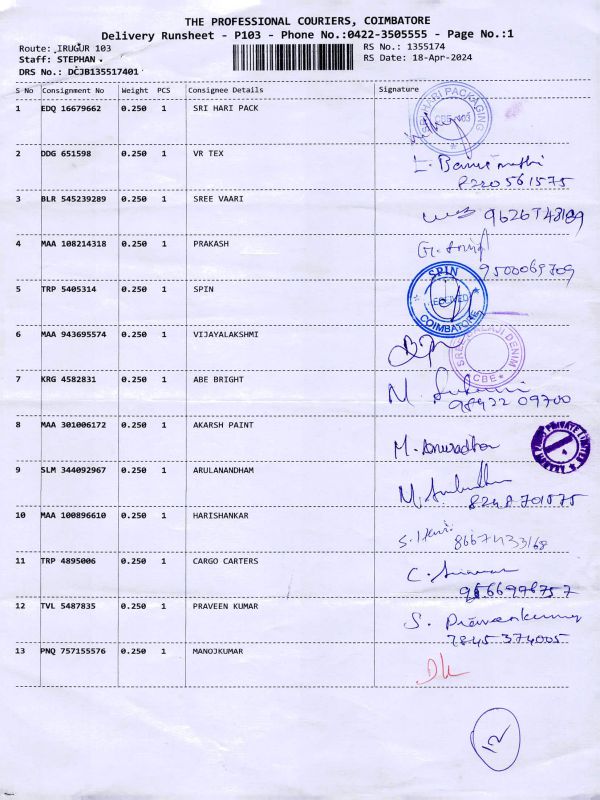 THE PROFESSIONAL COURIERS, COIMBATORE
Delivery Runsheet - P103 - Phone No.:0422-3505555 - Page No.:1
Route: IRUGUR 103
RS No.: 1355174
Staff: STEPHAN
RS Date: 18-Apr-2024
DRS No.: DCJB135517401
S No Consignment No Weight PCS Consignee Details Signature
1 EDQ 16679662 0.250 1 SRI HARI PACK
HARI PACKAGING
2 DDG 651598 0.250 1 VR TEX
8220561575
3 BLR 545239289 0.250 1 SREE VAARI
4 MAA 108214318 0.250 1 PRAKASH
9500069709
5 TRP 5405314 0.250 1 SPIN
SPIN
COIMBATORE
6 MAA 943695574 0.250 1 VIJAYALAKSHMI
DENIM
CBE
7 KRG 4582831 0.250 1 ABE BRIGHT
98422 09700
8 MAA 301006172 0.250 1 AKARSH PAINT
M. Anuradha
PRIVATE LIMITED
9 SLM 344092967 0.250 1 ARULANANDHAM
8248 701575
10 MAA 100896610 0.250 1 HARISHANKAR
8667433168
11 TRP 4895006 0.250 1 CARGO CARTERS
12 TVL 5487835 0.250 1 PRAVEEN KUMAR
S. Praveenkumar
7845 374005
13 PNQ 757155576 0.250 1 MANOJKUMAR
12